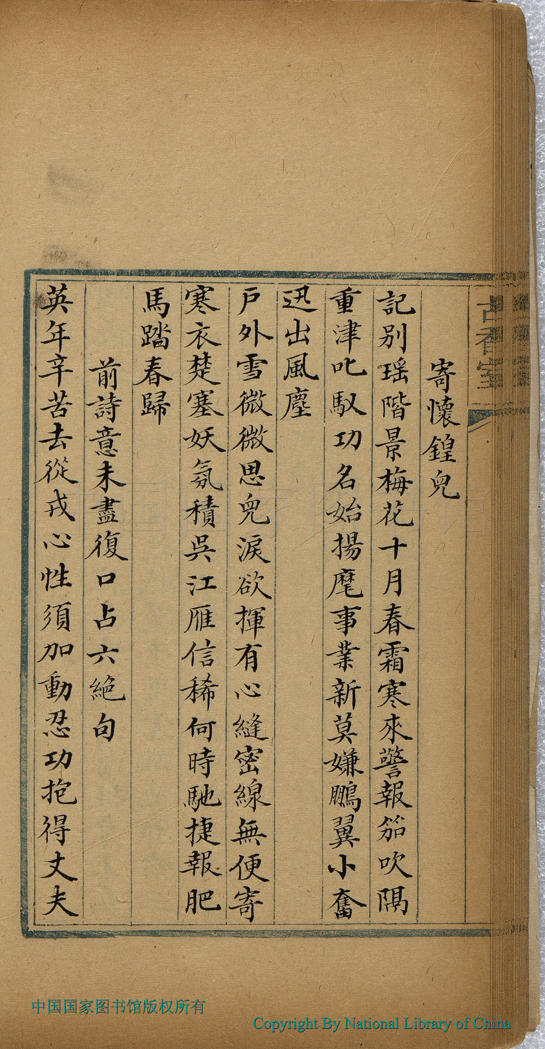 古香室
寄懷鍠兒
記別瑶階景梅花十月春霜寒來警報笳吹隔
重津叱馭功名始揚麾事業新莫嫌鵬翼小奮
迅出風塵
戶外雪微微思兒淚欲揮有心縫密線無便寄
寒衣楚塞妖氛積吳江雁信稀何時馳捷報肥
馬踏春歸
前詩意未盡復口占六絕句
英年辛苦去從戎心性須加動忍功抱得丈夫
中国国家图书馆版权所有
Copyright By National Library of China